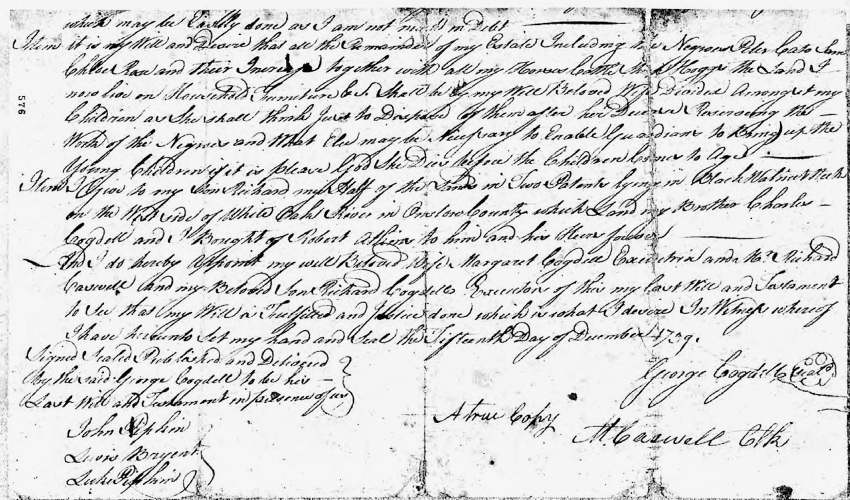 which may be Easilly done as I am not much in Debt
Item it is my Will and Desire that all the Remainder of my Estate Including the Negroes Peter Cato Sam
Chloe Rose and their Increase together with all my Horses Cattle Hoggs the Land I
now live on Household Furniture &c Shall be by my Will Beloved Wife Divided Amongst my
Children as She shall think Just to Dispose of them after her Decease Reserving the
Work of the Negroes and What Else may be Nicessary to Enable Guardians to Bring up the
Young Children if it is please God She Dies before the Children Comes to Age
Item I Give to my Son Richard my Half of the Land in Two Patents lying in Black Neck
on the West side of White Oak River in Onslow County which Land my Brother Charles
Cogdell and I Bought of Robert Atkins to him and his Heirs forever
And I do hereby Appoint my well Beloved Wife Margaret Cogdell Executrix and Mr. Richard
Caswell and my Beloved Son Richard Cogdell Executors of this my Last Will and Testament
to See that my Will is Fulfilled and Justice done which is what I desire In Witness whereof
I have hereunto Set my hand and Seal the Fifteenth Day of December 1759.
Signed Sealed Published and Delivered
By the said George Cogdell to be his
Last Will and Testament in presence of us
George Cogdell Seal
John
Lewis Bryent
Luke
A true Copy
M. Caswell Clk
576